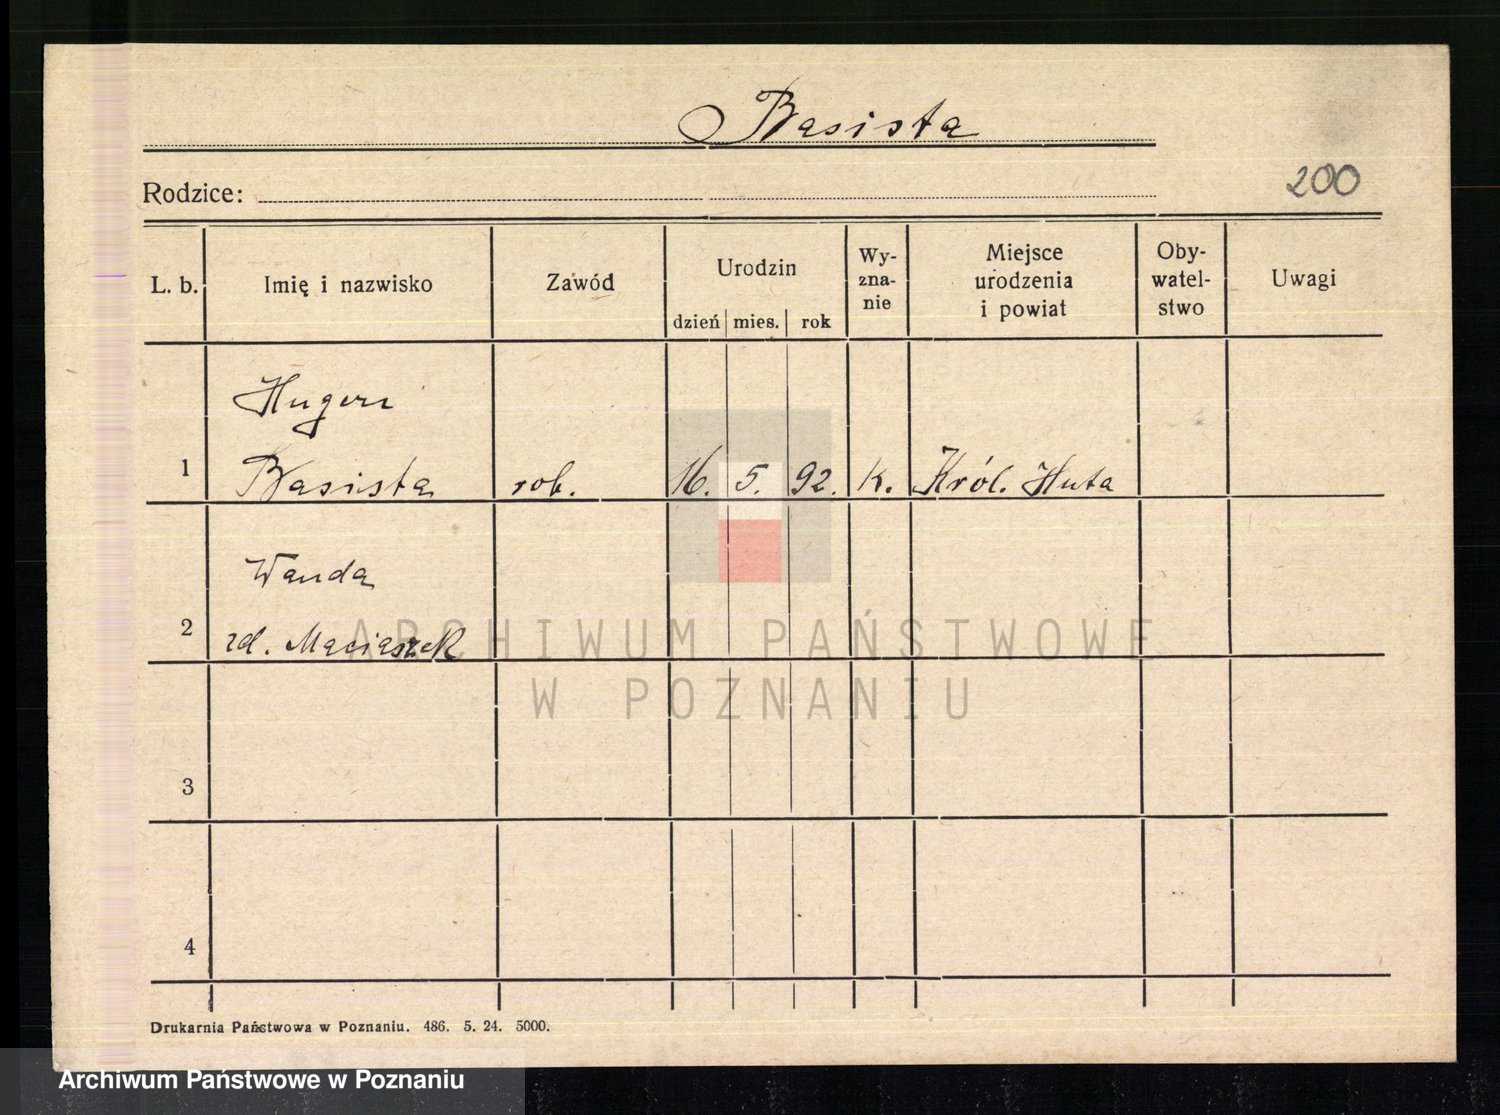 Basista
Rodzice:
200
L. b. Imię i nazwisko Zawód Urodzin dzień mies. rok Wy-zna-nie Miejsce urodzenia i powiat Oby-watel-stwo Uwagi
Hugon
1 Basista rob. 16. 5. 92. k. Król. Huta
Wanda
2 zd. Maciaszek
ARCHIWUM PAŃSTWOWE
W POZNANIU
3
4
Drukarnia Państwowa w Poznaniu. 486. 5. 24. 5000.
Archiwum Państwowe w Poznaniu